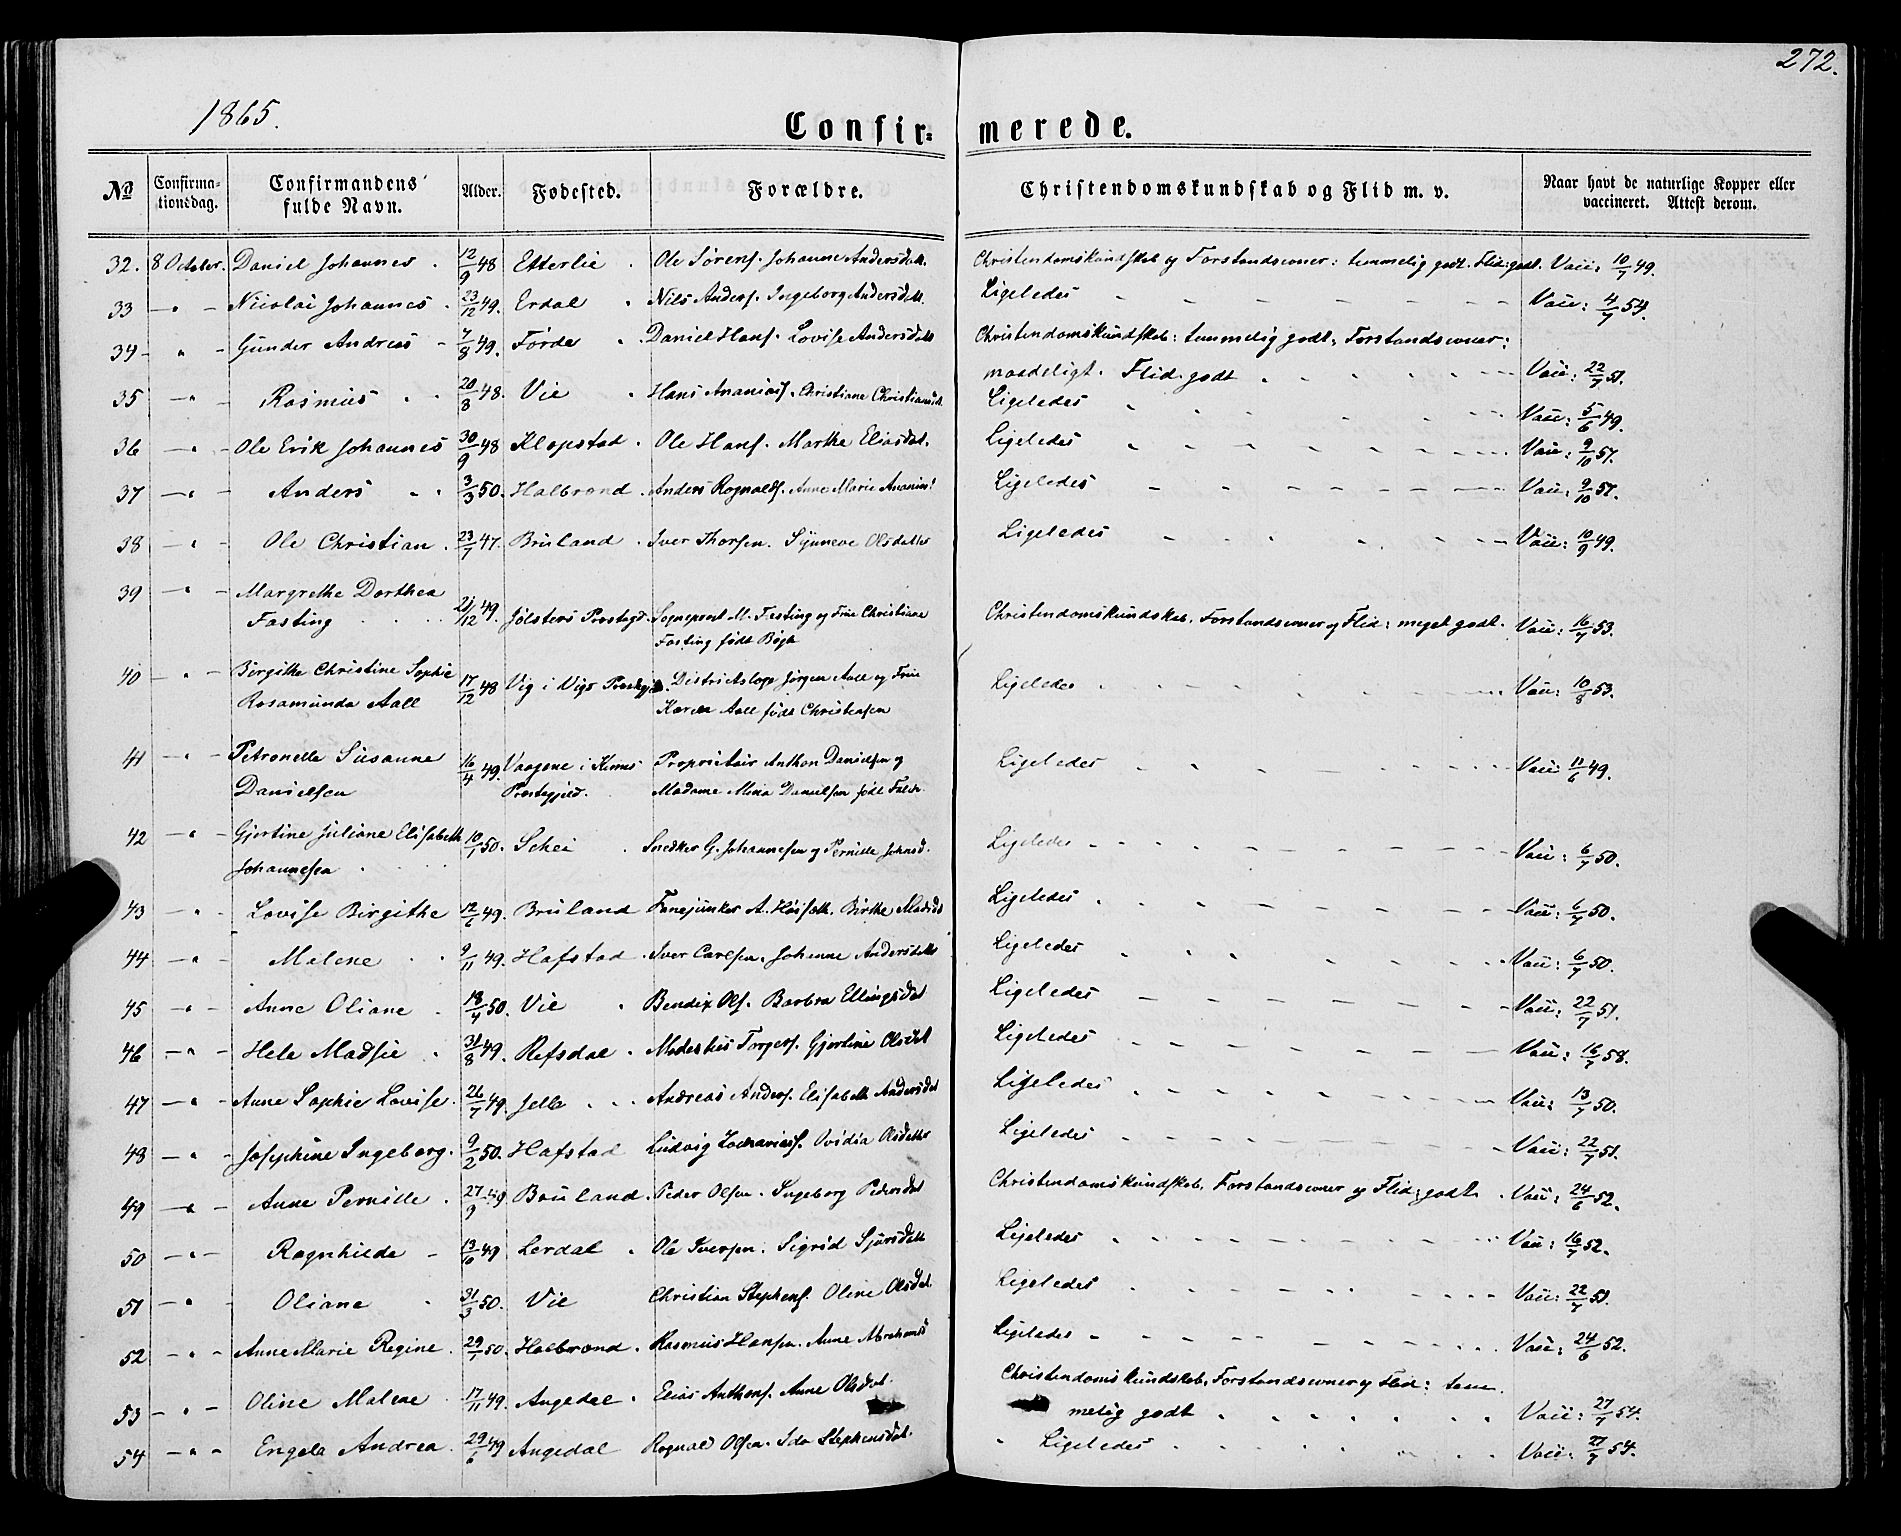 272.
1865.
Confir- merede.
No Confirma-tionsdag. Confirmandens fulde Navn. Alder. Fødested. Forældre. Christendomskundskab og Flid m. v. Naar havt de naturlige Kopper eller vaccineret. Attest derom.
32. 8 October. Daniel Johannes. 12/9 48 Etterlie. Ole Sørens. Johanne Andersdatt. Christendomskundskab og Forstandsevner: temmelig godt. Flid: godt. Vacc: 10/7 49.
33 — " — Nicolai Johannes. 23/12 49. Erdal. Nils Anders. Ingeborg Andersdatt. Ligeledes Vacc: 4/7 54.
34 — " — Gunder Andreas 7/8 49. Førde. Daniel Hans. Lovise Andersdatt Christendomskundskab: temmelig godt, Forstandsevner:
maadeligt. Flid godt Vacc: 22/7 51.
35 — " — Rasmus 20/8 48. Vie Hans Ananias. Christiane Christiansd. Ligeledes Vacc: 5/6 49.
36 — " — Ole Erik Johannes 30/9 48 Klopstad. Ole Hans. Marthe Eliasdat. Ligeledes Vacc: 9/10 57.
37 — " — Anders 3/3 50. Halbrend. Anders Rognalds. Anne Marie Ligeledes Vacc: 9/10 51.
38 — " — Ole Christian. 23/7 47. Bruland. Iver Thorsen. Synneve Olsdatter Ligeledes Vacc: 10/9 49.
39 — " — Margrethe Dorthea
Fasting 21/12 49. Jølsters Prestegd. Sogneprest M. Fasting og Frue Christiane Christendomskundskab, Forstandsevner og Flid: meget godt. Vacc: 16/7 53.
Fasting født Bøgh
40 — " — Birgithe Christine Sophie
Rosamunda Aall 17/12 48 Vig i Vigs Distriktslæge Jørgen Aall og Frue Ligeledes Vacc: 10/8 53.
Karen Aall født Christensen
41 — " — Petronelle Susanne
Danielsen 16/4 49. Vaagene i Kinns Proprietair Anthon Danielsen og Ligeledes Vacc 11/6 49.
Prestegjeld. Madame Mina Danielsen født
42 — " — Gjertine Juliane Elisabeth
Johannesen 10/1 50. Schei Snedker G. Johannesen og Pernille Johnsd. Ligeledes Vacc: 6/7 50.
43 — " — Lovise Birgithe 12/6 49. Bruland Fanejunker A. Birthe Madsdt Ligeledes Vacc: 6/7 50.
44 — " — Malene 9/11 49. Hafstad. Iver Carlsen. Johanne Andersdatt Ligeledes Vacc: 6/7 50.
45 — " — Anne Oliane 18/4 50. Vie Bendix Ols. Barbra Ellingsdat Ligeledes Vacc: 22/7 51.
46 — " — Hele Madsie 31/8 49. Refsdal. Modestus Torgers. Gjertine Olsdat Ligeledes Vacc: 16/7 58.
47 — " — Anne Sophie Lovise. 26/7 49. Jelle Andreas Anders. Elisabeth Andersdat Ligeledes Vacc: 13/7 50.
48 — " — Josephine Ingeborg. 9/2 50. Hafstad Ludvig Zacharias. Ovidia Olsdatter Ligeledes Vacc: 22/7 51.
49 — " — Anne Pernille. 27/9 49 Bruland. Peder Olsen. Ingeborg Pedersdat Christendomskundskab, Forstandsevner og Flid: godt. Vacc: 24/6 52.
50 — " — Ragnhilde 13/10 49 Lerdal. Ole Iversen. Sigrid Sjursdatt Ligeledes Vacc: 16/7 52.
51 — " — Oliane 31/3 50. Vie Christian Stephens. Oline Olsdat. Ligeledes Vacc: 22/7 51.
52 — " — Anne Marie Regine. 29/1 50. Halbrend. Rasmus Hansen. Anne Ligeledes Vacc: 24/6 52.
53 — " — Oline Malene 17/11 49. Angedal. Elias Anthons. Anne Olsdat. Christendomskundskab, Forstandsevner og Flid: tem-
melig godt Vacc: 27/7 54.
54 — " — Engele Andrea. 29/6 49 Angedal Rognald Olsen. Ida Stephensdat. Ligeledes Vacc: 27/7 54.